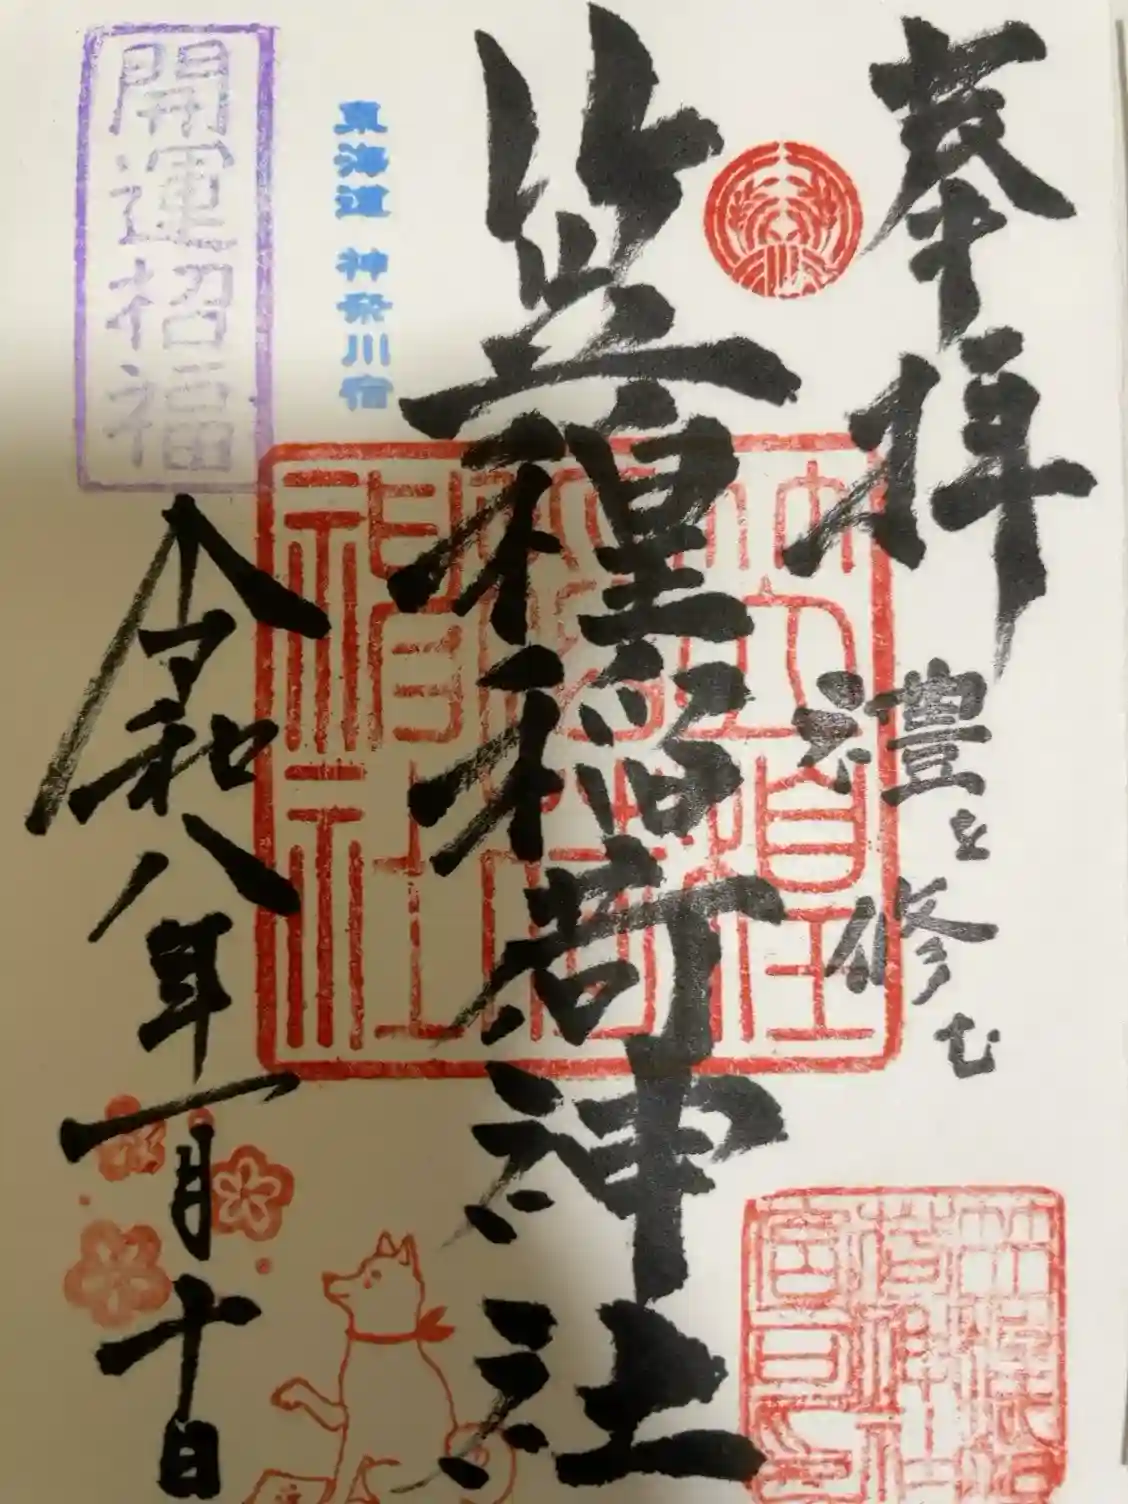 奉拝
禮を修む
笠䅣稲荷神社
笠䅣稲荷神社
東海道 神奈川宿
開運招福
令和八年一月十日